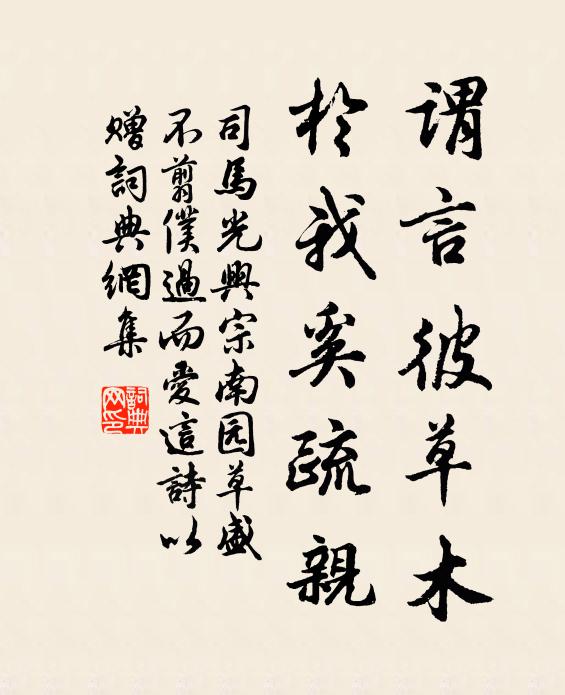 謂言彼草木
於我奚疏親
司馬光興宗南园草盛
不翦僕過而愛這詩以
贈詞典網集
詞典网印